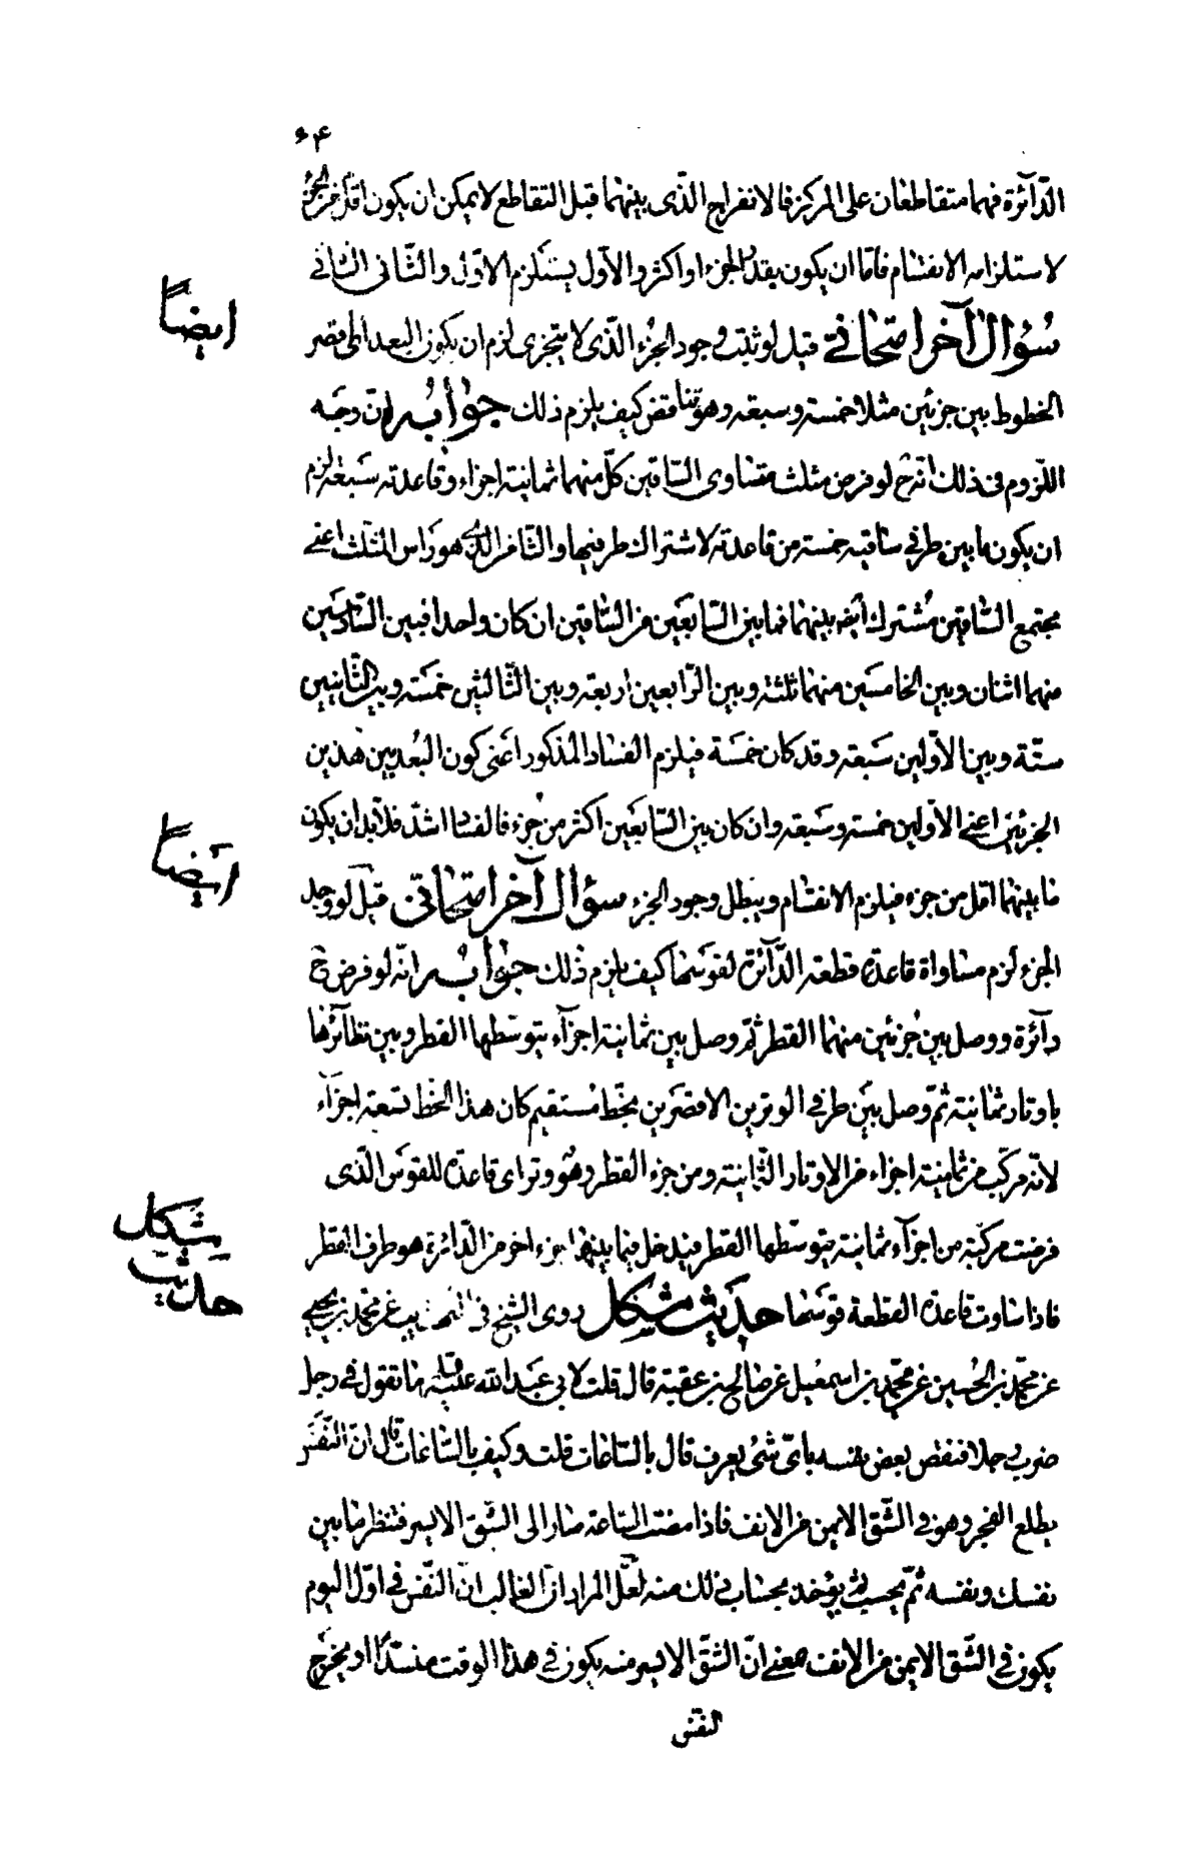 ۶۴
الدّآئرة فهما متقاطعان على المركز فالانفراج الّذى بينهما قبل التقاطع لا يمكن ان يكون اقل من الجزء
لاستلزامه الانقسام فامّا ان يكون بقدر الجزء او اكثر و الاول يستلزم الاوّل و الثّانى الثانى
ايضاً
سُؤال آخر امتحانىّ قيل لو ثبت وجود الجزء الّذى لا يتجزى لزم ان يكون البعد اى اقصر
الخطوط بين جزئين مثلا خمسته و سبعته و هو تناقض كيف يلزم ذلك جوابُه انّ وجه
اللّزوم فى ذلك انّه ح لو فرض مثلث متساوى السّاقين كلّ منهما ثمانيته اجزاء و قاعدته سَبعة لزم
ان يكون ما بين طرفى ساقيه خمسته من قاعدته لاشتراك طرفيها و الثامن الّذى هو رَاس المثلث اعنى
مجتمع السّاقين مُشترك ايضا بينهما فما بين السّابعَين من السّاقين ان كان واحدا فبين السّادسَين
منهما اثنان و بين الخامسَين منهما ثلثته و بين الرّابعين اربعته و بين الثّالثين خمسَته و بين الثّانيين
ستّة و بين الاوّلين سَبعته و قد كان خمسَة فيلزم الفساد المذكور اعنى كون البُعد بين هذين
الجزئين اعنى الاوّلين خمسته و سَبعته و ان كان بين السّابعَين اكثر من جُزء فالفساد اشدّ فلابدّ ان يكون
ايضاً
ما بينهما اقل من جزء فيلزم الانقسام و يبطل وجود الجزء سؤال آخر امتحانىّ قيل لو وجد
الجزء لزم مساواة قاعدة قطعته الدّآئرة لقوسها كيف يلزم ذلك جوابُه انّه لو فرض ح
دآئرة و وصل بين جُزئين منهما القطر ثمّ وصل بين ثمانيته اجزآء يتوسّطها القطر و بين نظآئرها
باوتار ثمانيته ثمّ وصل بيَن طرفى الوترين الاقصَرين بخّط مستقيم كان هذا الخّط تسعته اجزآء
لانّه مركّب من ثمانيته اجزاء من الاوتار الثّمانيته و من جزء القطر و هُو وتر اى قاعدة للقوس الّذى
مشكل
حديث
فرضت مركبّة من اجزآء ثمانيته يتوسّطها القطر فيدخل فيما بينها جزء اخر من الدّائرة هو طرف القطر
فاذا ساوت قاعدة القطعة قوسَها حديث مشكل روى الشيخ فى التهذيب عن محمّد بن يحيى
عن محمّد بن الحُسين عن محمّد بن اسمعيل عن صالح بن عقبة قال قلت لابى عبَد الله عليه السّلام ما تقول فى رجل
ضرب رجلا فنقص بعض نفسه باىّ شئ يعرف قال بالسّاعات قلت و كيف بالسّاعات قال انّ النّفَس
يطلع الفجر و هو فى الشّق الايمن من الانف فاذا مضت السّاعة صار الى الشّق الايسر فتنظر ما بين
نفسك و نفسه ثمّ يحسب ثمّ يؤخذ بحساب ذلك منه لعّل المراد انّ الغالب انّ النّفس فى اوّل اليوم
يكون فى الشّق الايمن من الانف معنى انّ الشّق الايسر منه يكون فى هذا الوقت منسدّا او يخرج
النفس